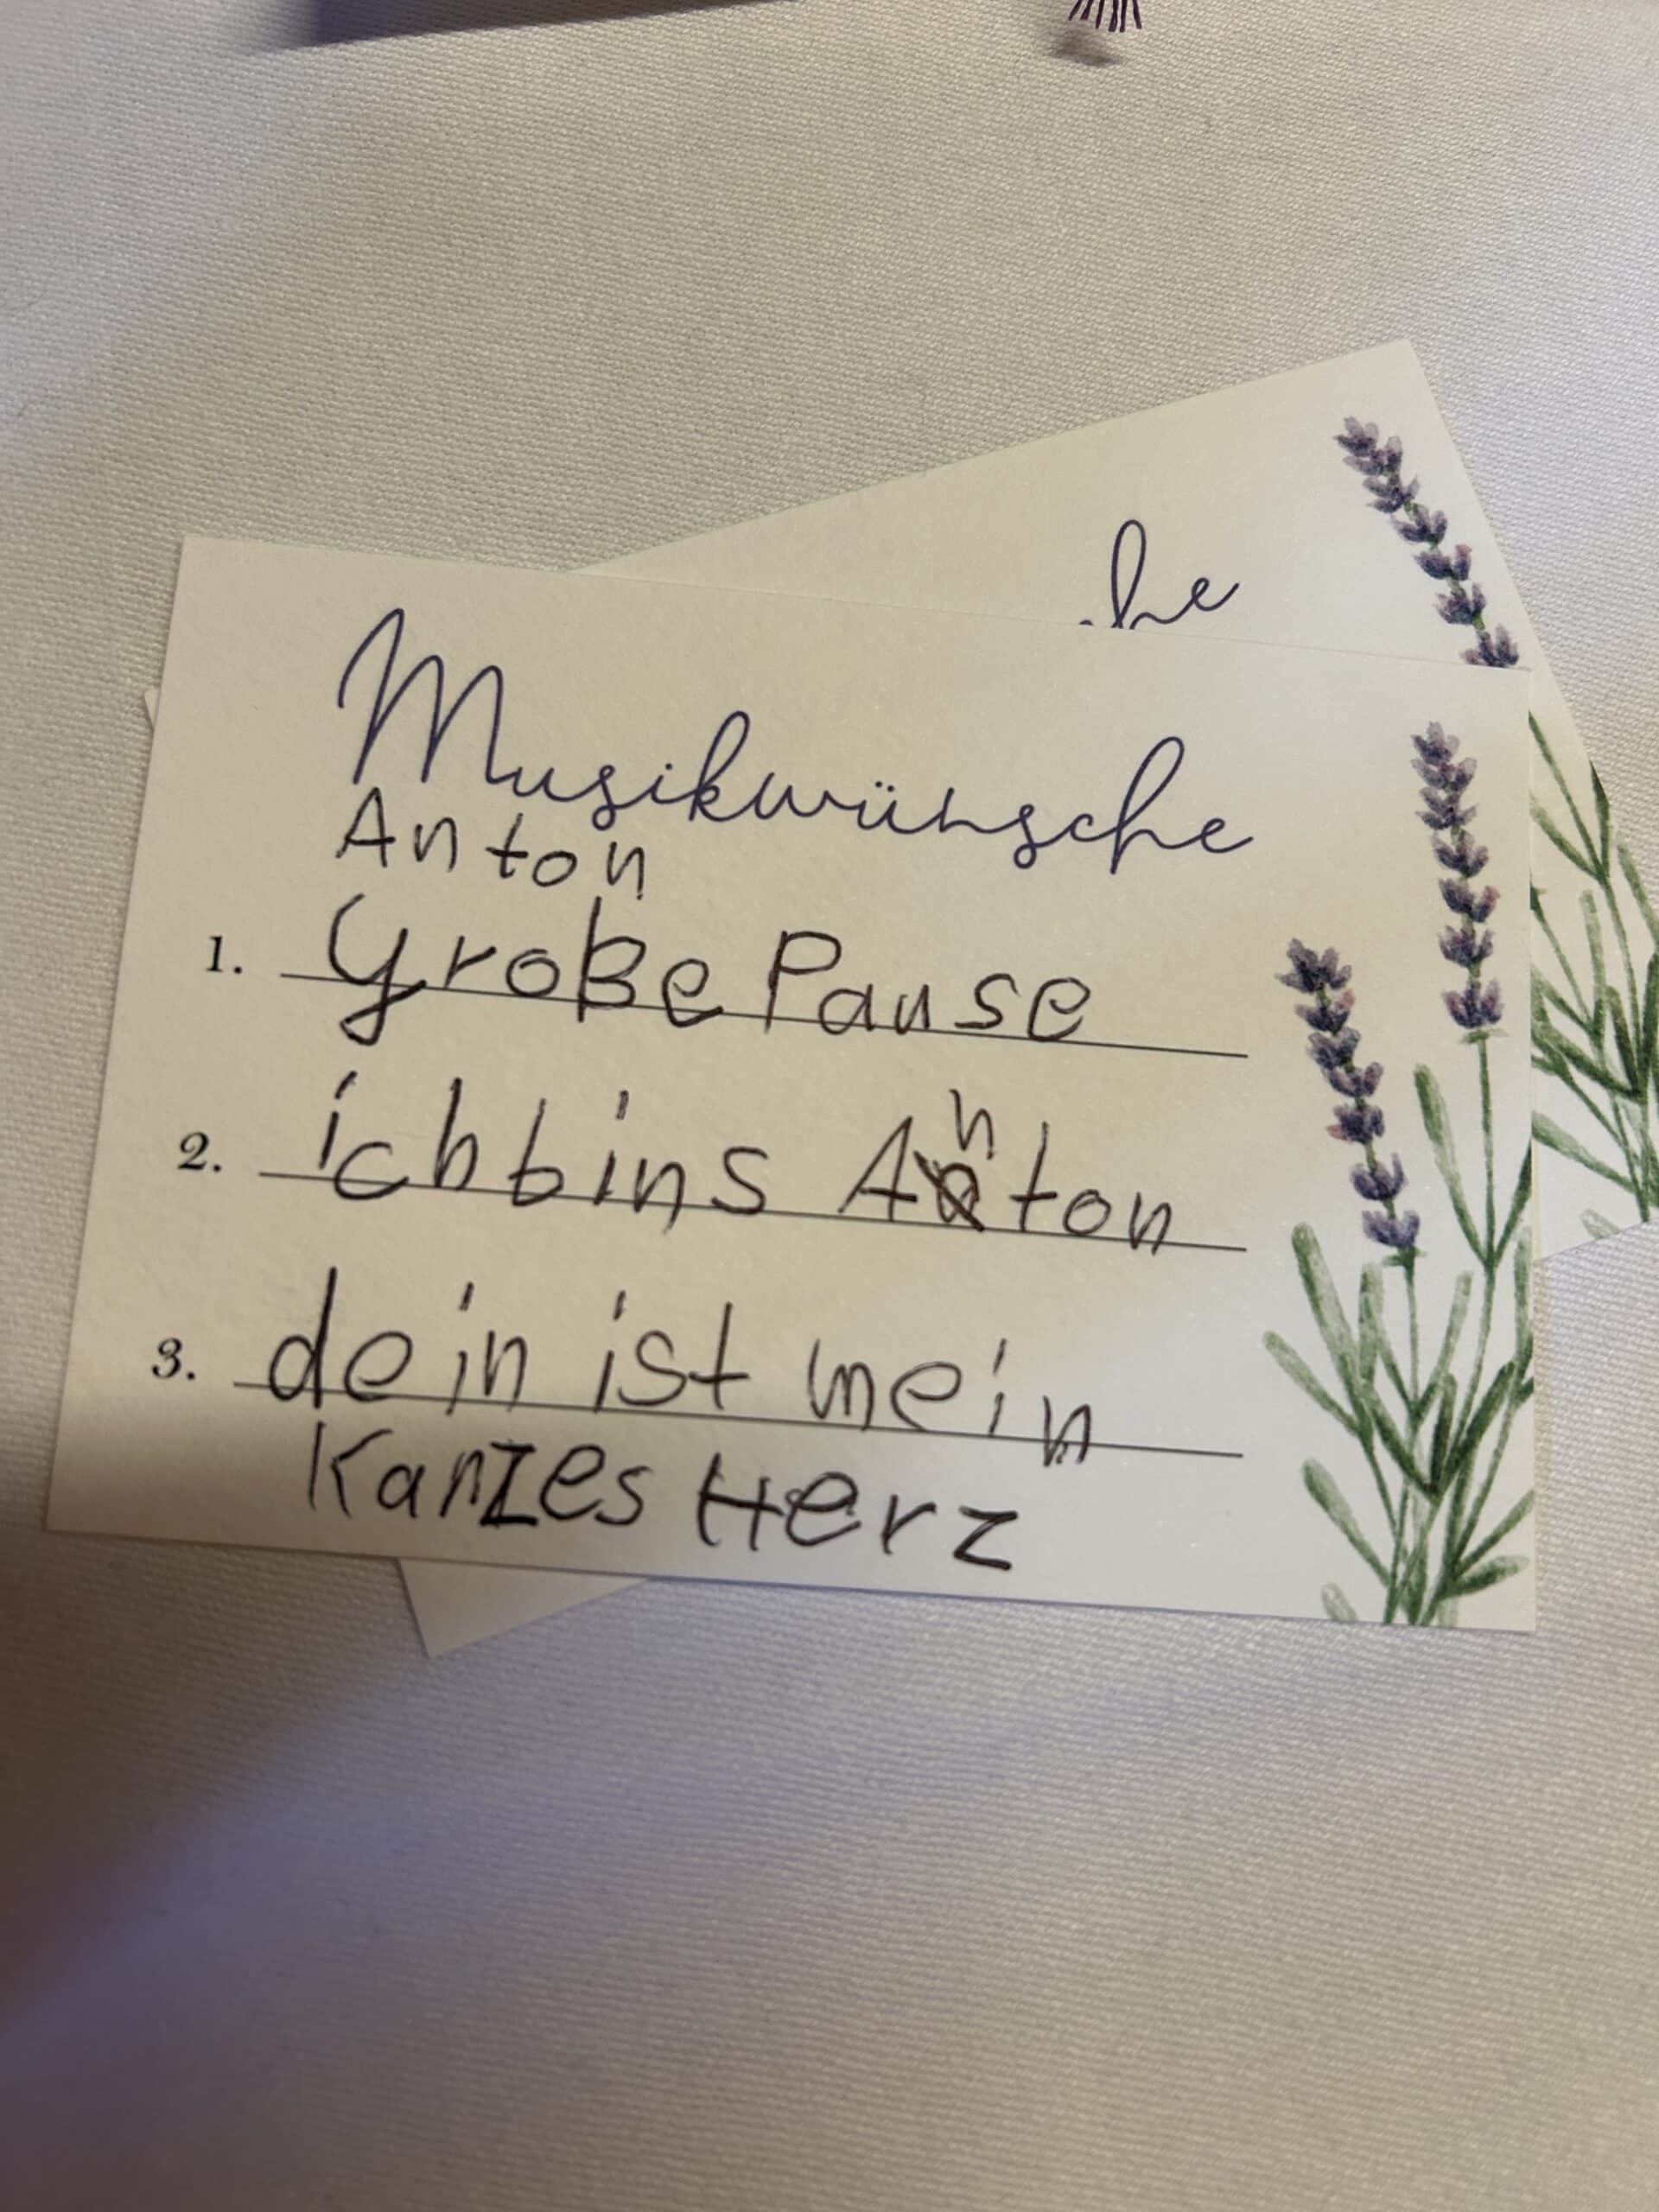 he
Musikwünsche
Anton
1. Große Pause
2. ich bins Anton
3. dein ist mein
Kanzes Herz